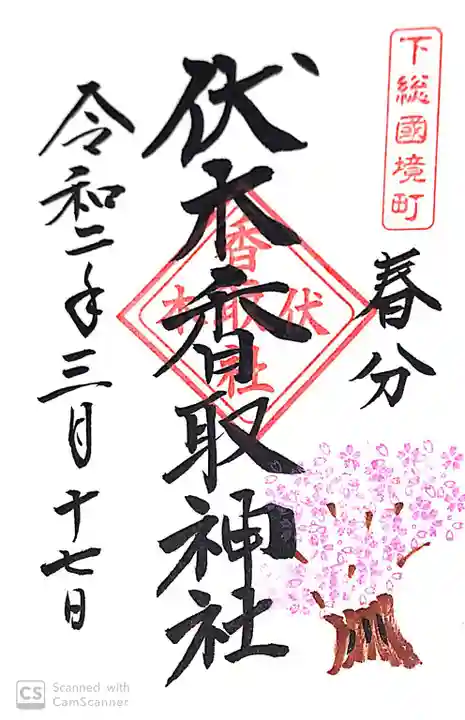 下総國境町
春分
伏木香取神社
伏木
香取社
令和二年三月十七日
CS Scanned with
CamScanner